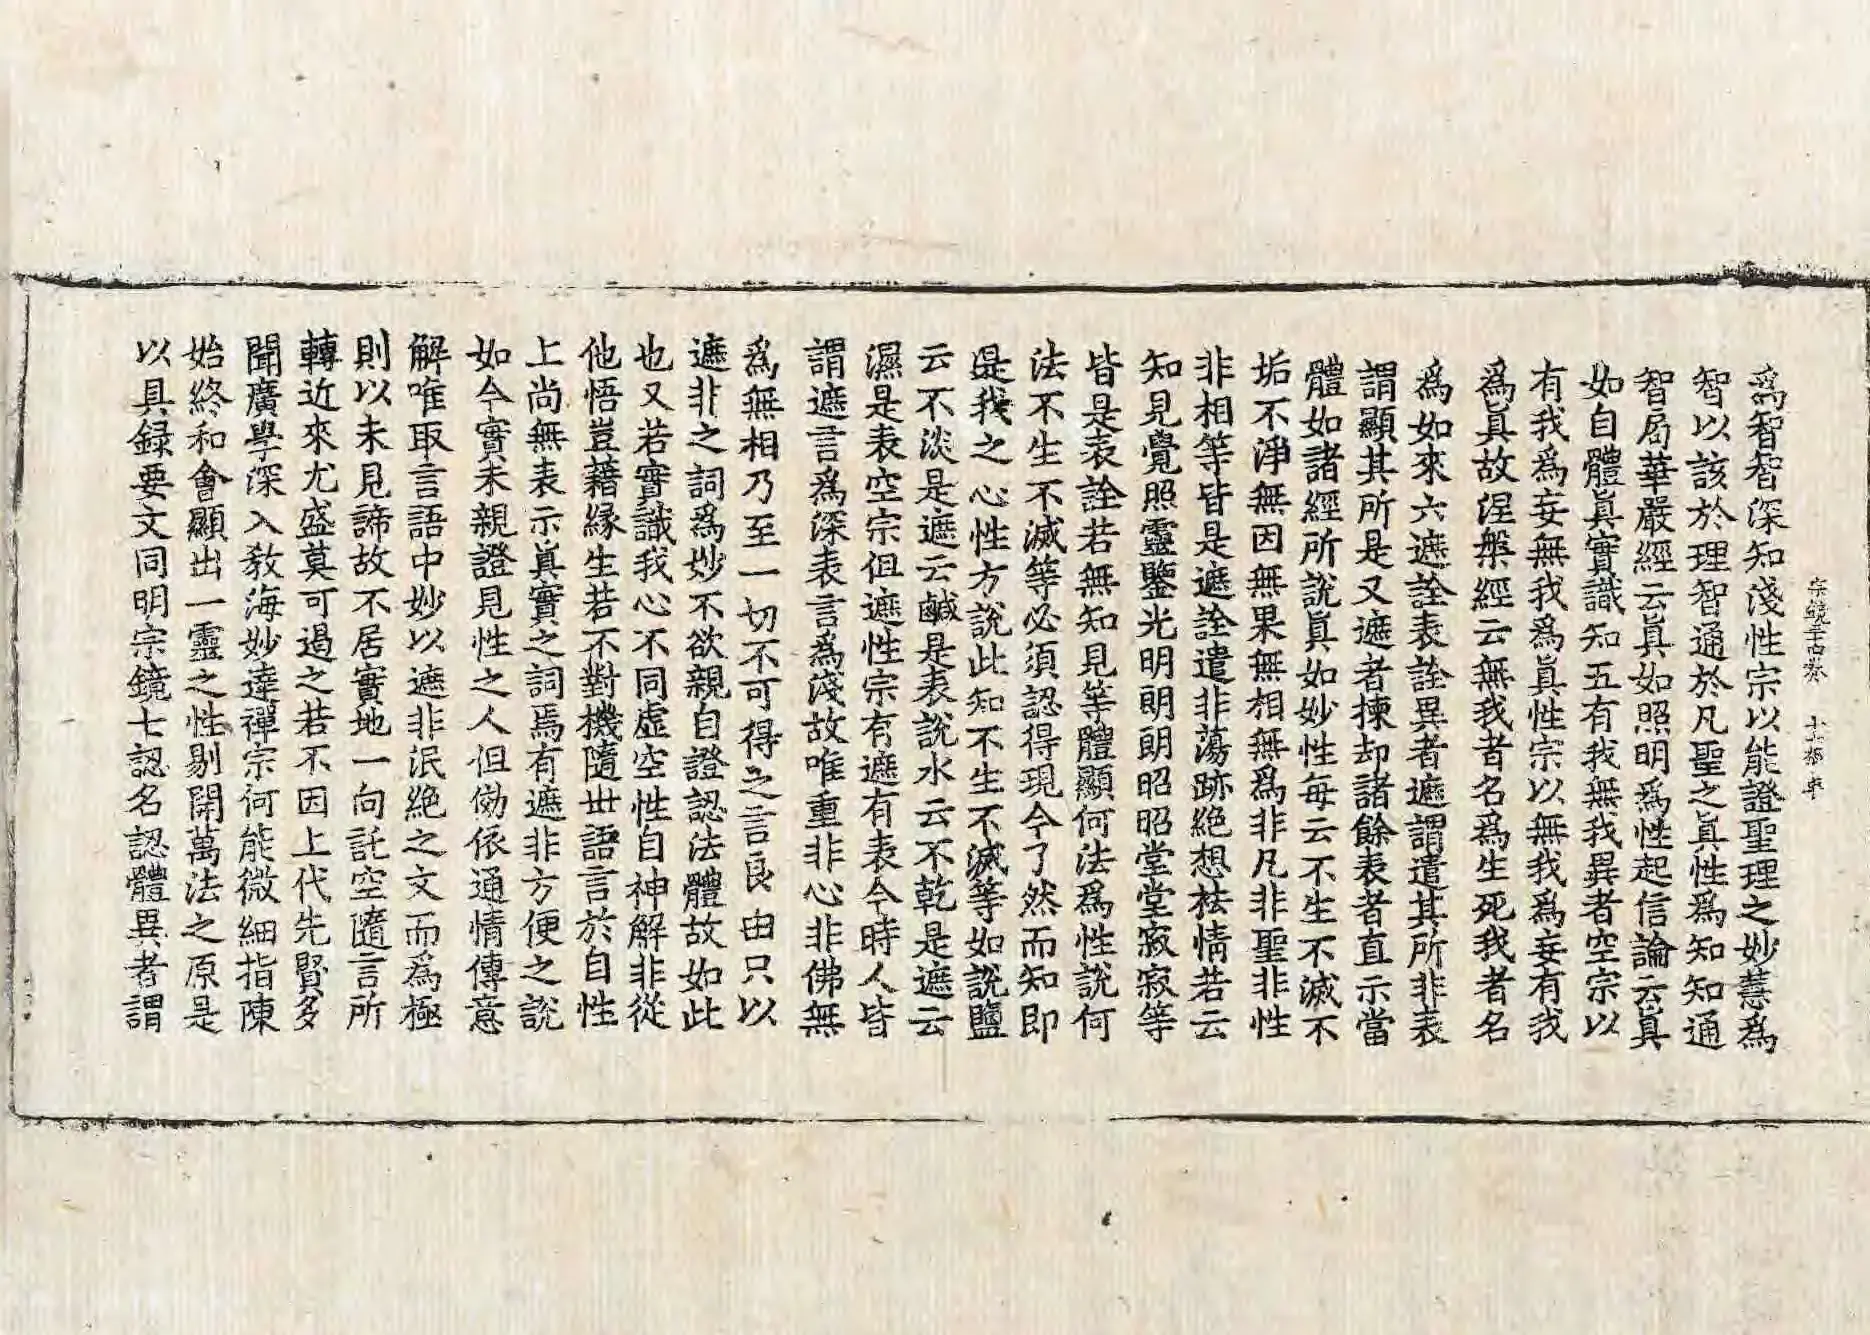 宗鏡三十四卷 十七
爲智智深知淺性宗以能證聖理之妙慧爲
智以該於理智通於凡聖之眞性爲知知通
智局華嚴經云眞如照明爲性起信論云眞
如自體眞實識知五有我無我異者空宗以
有我爲妄無我爲眞性宗以無我爲妄有我
爲眞故涅槃經云無我者名爲生死我者名
爲如來六遮詮表詮異者遮謂遣其所非表
謂顯其所是又遮者揀却諸餘表者直示當
體如諸經所說眞如妙性每云不生不滅不
垢不淨無因無果無相無爲非凡非聖非性
非相等皆是遮詮遣非蕩跡絕想袪情若云
知見覺照靈鑒光明朗朗昭昭堂堂寂寂等
皆是表詮若無知見等體顯何法爲性說何
法不生不滅等必須認得現今了然而知即
是我之心性方說此知不生不滅等如說鹽
云不淡是遮云鹹是表說水云不乾是遮云
濕是表空宗但遮性宗有遮有表今時人皆
謂遮言爲深表言爲淺故唯重非心非佛無
爲無相乃至一切不可得之言良由只以
遮非之詞爲妙不欲親自證認法體故如此
也又若實識我心不同虛空性自神解非從
他悟豈藉緣生若不對機隨世語言於自性
上尚無表示眞實之詞焉有遮非方便之說
如今實未親證見性之人但傚依通情傳意
解唯取言語中妙以遮非泯絕之文而爲極
則以未見諦故不居實地一向託空隨言所
轉近來尤盛莫可過之若不因上代先賢多
聞廣學深入教海妙達禪宗何能微細指陳
始終和會顯出一靈之性剔開萬法之原是
以具録要文同明宗鏡七認名認體異者謂